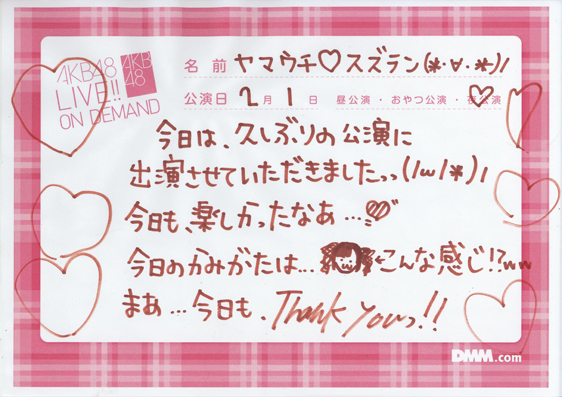 AKB48
LIVE!!
ON DEMAND
AKB
48
名前 ヤマウチ♡スズラン(*･∀･*)ﾉ
公演日 2月1日 昼公演・おやつ公演・夜公演
今日は、久しぶりの公演に
出演させていただきましたっっ(/ω/*)ﾉ
今日も、楽しかったなあ…♡
今日のかみがたは…←こんな感じ!?ww
まあ…今日も、Thank youっ!!
DMM.com